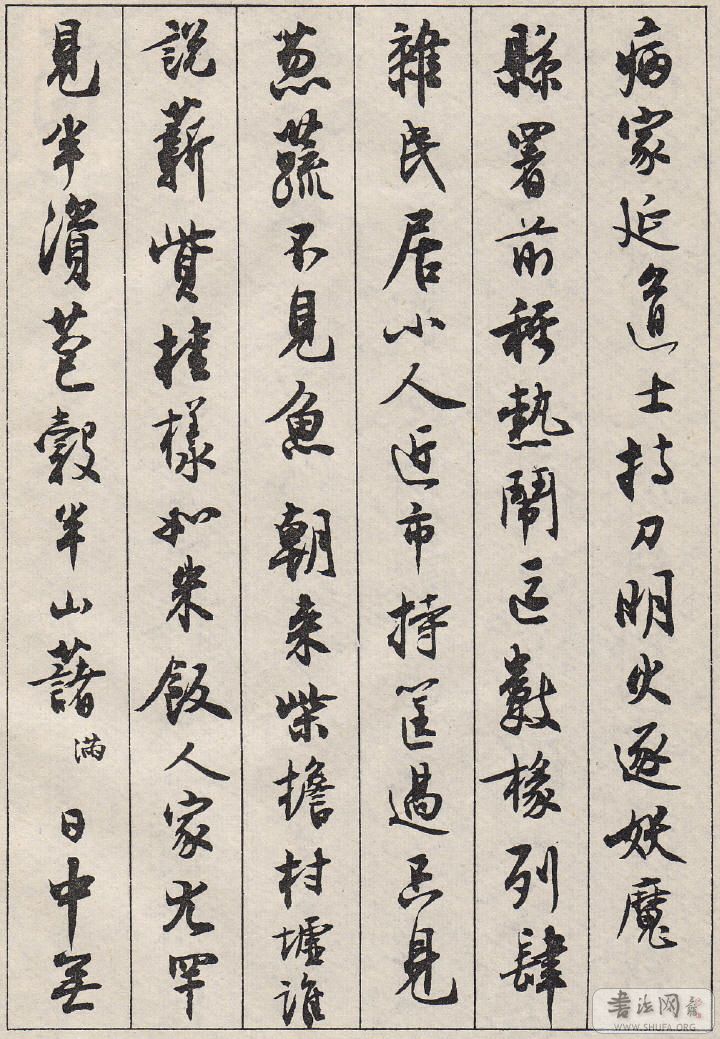 病家延道士持刀明火逐妖魔
縣署前稱熱鬧區數椽列肆
雜民居小人近市持筐過只見
葱蔬不見魚 朝来柴擔村墟誰
說薪貲桂樣如米飯人家尤罕
見半苞穀半山藷 满 日中無
書法网
WWW.SHUFA.ORG